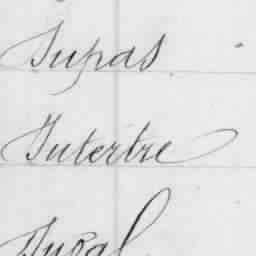 Dupas
Dutertre
Duval